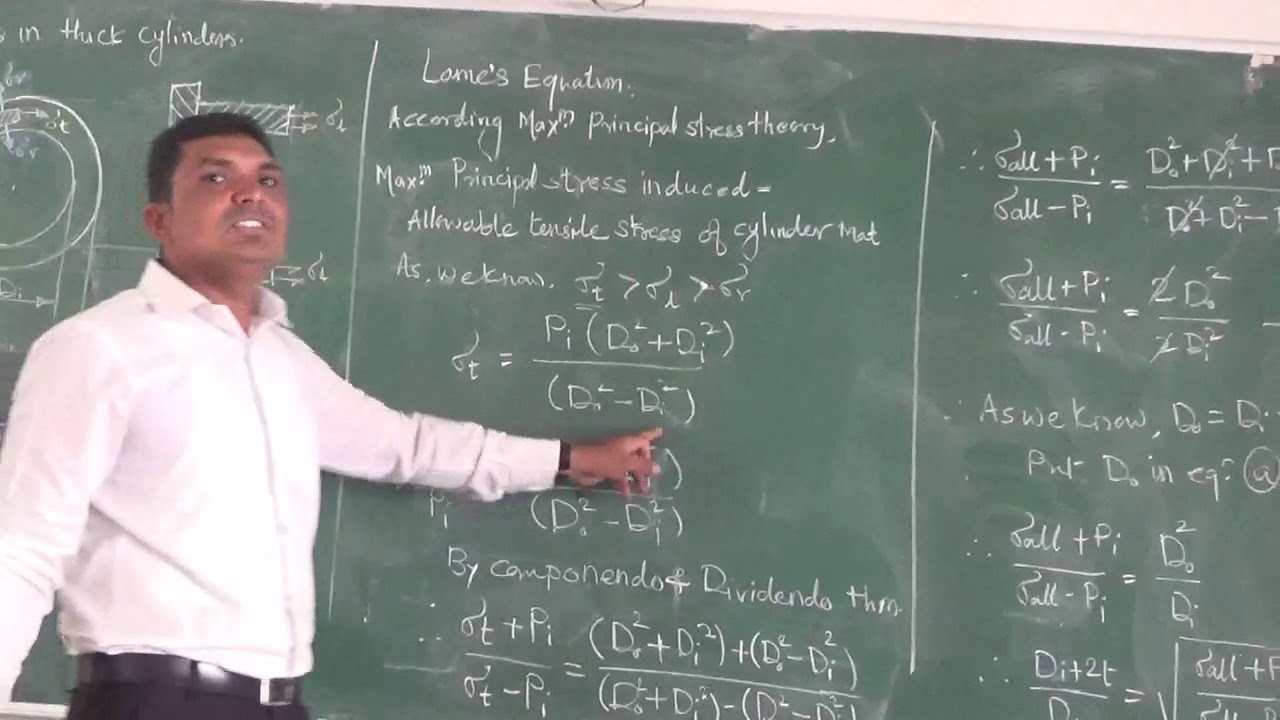 in thick cylinders.
σr
σt
σr
σl
σl
Di
Lame's Equation.
According Maxm principal stress theory.
Maxm Principal stress induced =
Allowable tensile stress of cylinder mat
As, we know. σt > σl > σr
σt = Pi (Do² + Di²) / (Do² - Di²)
Pi
(Do² - Di²)
By componendo & Dividendo thm.
∴ (σt + Pi) / (σt - Pi) = ((Do² + Di²) + (Do² - Di²)) / ((Do² + Di²) - (Do² - Di²))
∴ (σall + Pi) / (σall - Pi) = (Do² + Di² + D / Do² + Di² -
∴ (σall + Pi) / (σall - Pi) = 2 Do² / 2 Di²
∴ As we know, Do = Di
Put Do in eqn (a)
∴ (σall + Pi) / (σall - Pi) = Do² / Di
∴ (Di + 2t) / Di = √ (σall + P